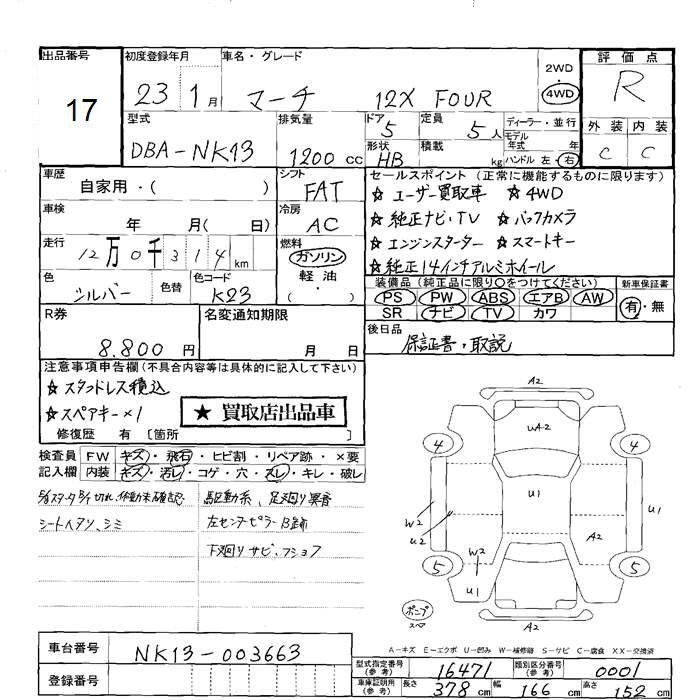 出品番号 17
初度登録年月 23 1月
車名・グレード マーチ 12X FOUR
2WD・4WD
評価点 R
型式 DBA-NK13
排気量 1200 cc
ドア 5
定員 5人
ディーラー・並行
モデル年式 年
形状 HB
積載 kg
ハンドル 左・右
外装 C 内装 C
車歴 自家用・( )
シフト FAT
車検 年 月( 日)
冷房 AC
走行 12万0千314km
燃料 ガソリン 軽油・( )
色 シルバー 色替 色コード K23
セールスポイント(正常に機能するものに限ります)
☆ ユーザー買取車 ☆ 4WD
☆ 純正ナビ・TV ☆ バックカメラ
☆ エンジンスターター ☆ スマートキー
☆ 純正14インチアルミホイール
装備品(純正品に限り○をつけてください) 新車保証書
PS PW ABS エアB AW 有・無
SR ナビ TV カワ
R券 8.800円
名変通知期限 月 日
後日品 保証書・取説
注意事項申告欄(不具合内容等は具体的に記入して下さい)
☆ スタッドレス積込
☆ スペアキー×1
★ 買取店出品車
修復歴 有 [箇所
検査員記入欄
FW キズ・飛石・ヒビ割・リペア跡・×要
内装 キズ・汚レ・コゲ・穴・スレ・キレ・破レ
切れ、作動未確認
シートヘタリ、シミ
駆動系、足廻り異音
左センターピラーB補
下廻りサビ、フショク
A2
4 UA2 4
U1 U1
W2 U2 A2
W2
5 U1 5
ポンプ スペア
A2
A-キズ E-エクボ U-凹み W-補修跡 S-サビ C-腐食 XX-交換済
車台番号 NK13-003663
登録番号
型式指定番号(参考) 16471 類別区分番号(参考) 0001
車庫証明用(参考) 長さ 378 cm 幅 166 cm 高さ 152 cm